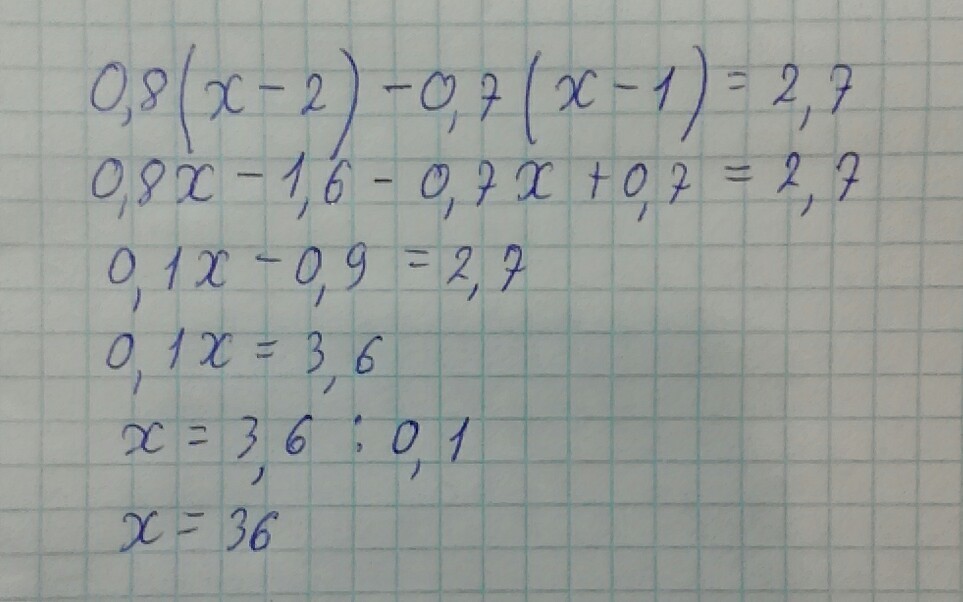 0,8(x-2)-0,7(x-1)=2,7
0,8x-1,6-0,7x+0,7=2,7
0,1x-0,9=2,7
0,1x=3,6
x=3,6:0,1
x=36